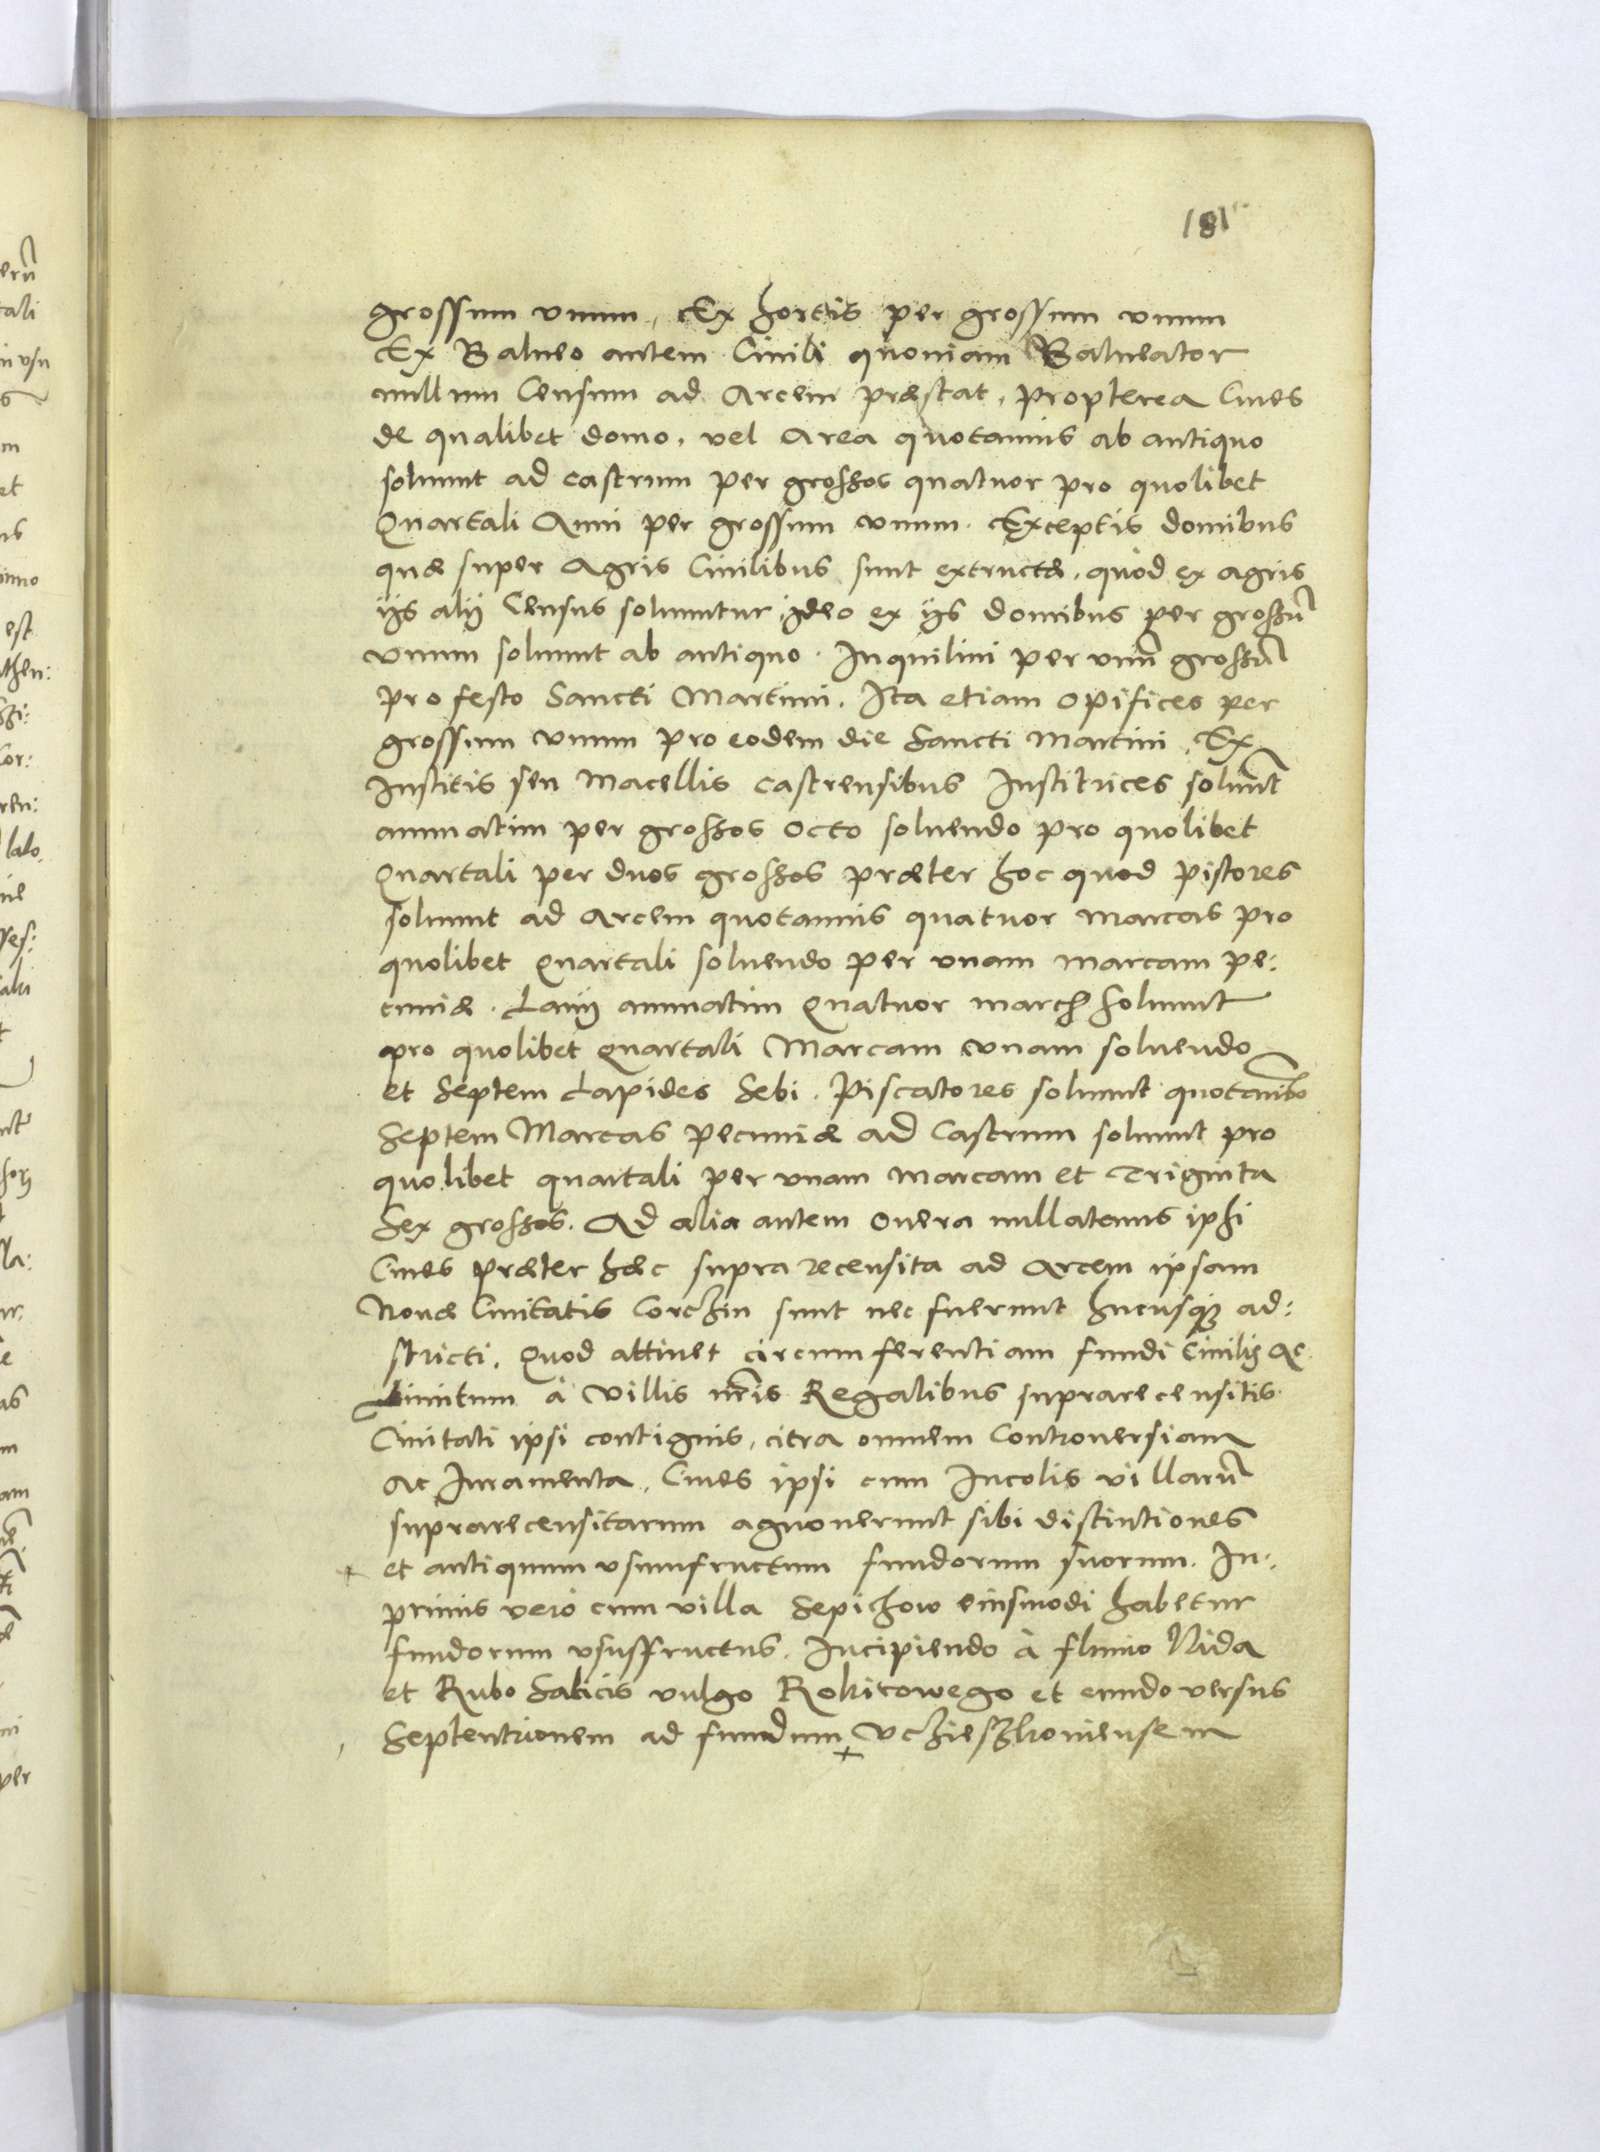 181
grossum vnum, Ex hortis per grossum vnum
Ex Balneo autem Ciuili quoniam Balneator
nullum Censum ad Arcem præstat, propterea Ciues
de qualibet domo, vel Area quotannis ab antiquo
soluunt ad castrum per grossos quatuor pro quolibet
Quartali Anni per grossum vnum. Exceptis domibus
quæ super Agris Ciuilibus sunt extructæ, quòd ex agris
ijs alij Census soluuntur ideo ex ijs domibus per grossū
vnum soluunt ab antiquo. Inquilini per vnū grossū
pro festo Sancti Martini. Ita etiam opifices per
grossum vnum pro eodem die Sancti Martini. Ex
Institis seu Macellis castrensibus Institrices soluūt
annuatim per grossos octo soluendo pro quolibet
Quartali per duos grossos præter hoc quod pistores
soluunt ad Arcem quotannis quatuor marcas pro
quolibet quartali soluendo per vnam marcam pe:
cuniæ. Lanij annuatim Quatuor march soluunt
pro quolibet quartali Marcam vnam soluendo
et septem Lapides sebi. Piscatores soluunt quotannis
septem Marcas pecuniæ ad Castrum soluunt pro
quolibet quartali per vnam marcam et Triginta
sex grossos. Ad alia autem onera nullatenus ipsi
Ciues præter hæc supra recensita ad Arcem ipsam
Nouæ Ciuitatis Corczin sunt nec fuerunt hucusq3 ad:
stricti. Quod attinet circumferentiam fundi Ciuilis ac
limitum à villis nr̄is Regalibus suprarecensitis
Ciuitati ipsi contiguis, citra omnem Controuersiam
ac Iuramenta, Ciues ipsi cum Incolis villarū
suprarecensitarum agnouerunt sibi distinctiones
+ et antiquum vsumfructum fundorum suorum. In:
primis verò cum villa Sepichow eiusmodi habetur
fundorum vsusfructus. Incipiendo à fluuio Nida
et Rubo Salicis vulgo Rokitowego et eundo versus
Septentrionem ad fundum + Vczieszkouiensem